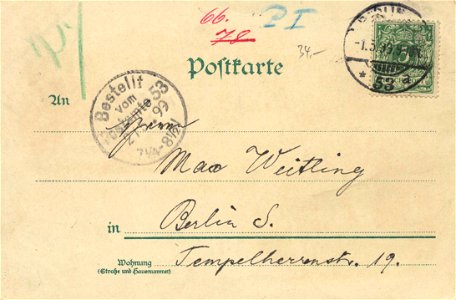 66.
78
P I
34.-
Postkarte
BERLIN
53 a
Bestellt
vom
Postamte 53
99
7¼-8½V
An
Herrn
Max Weitling
in Berlin S.
Wohnung
(Straße und Hausnummer)
Tempelherrenstr. 19.